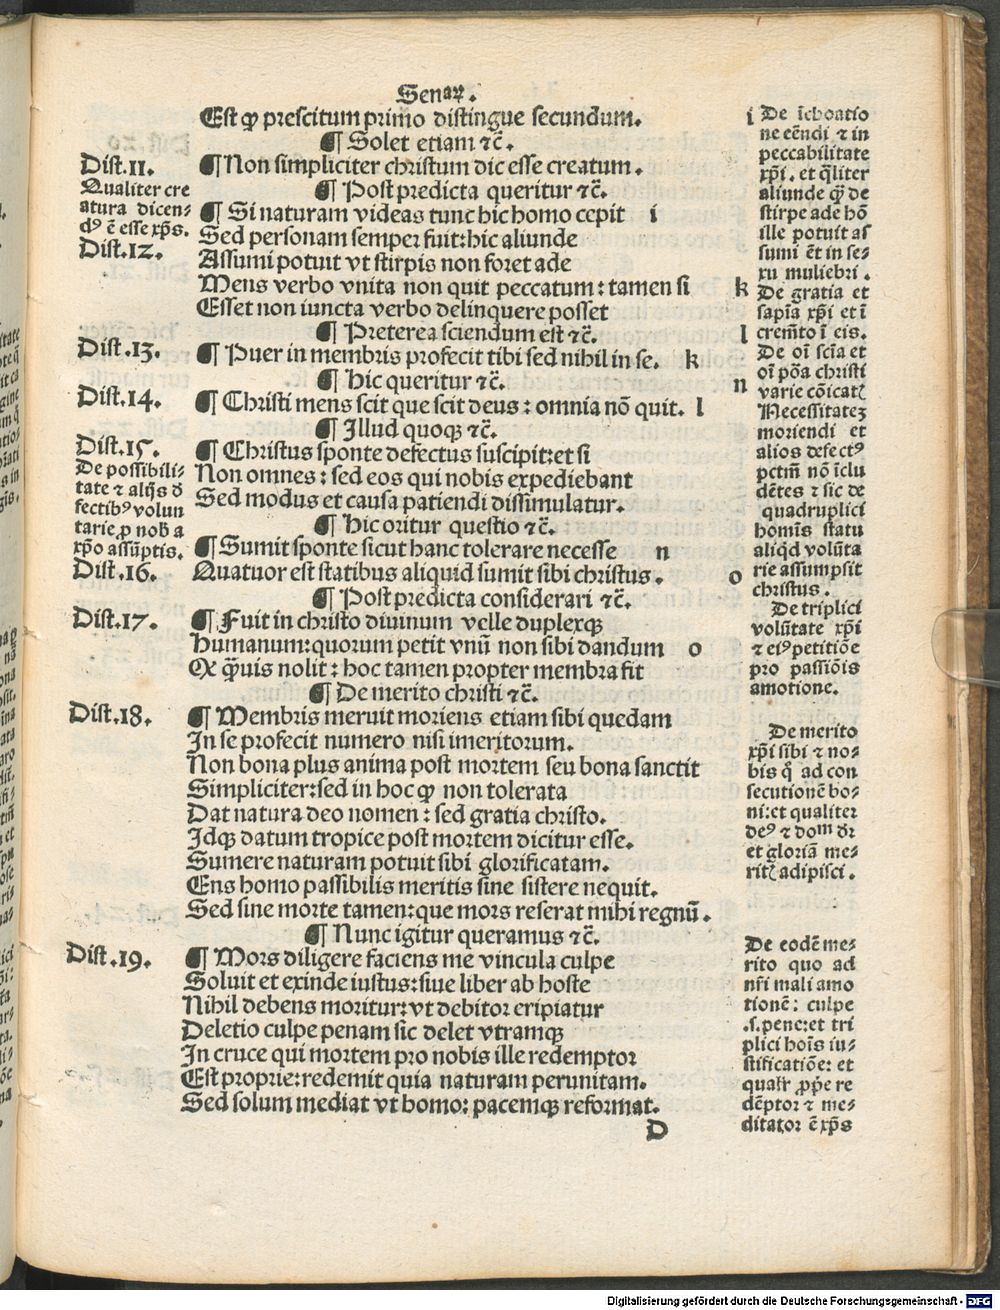 Senaꝝ.
Est ꝙ prescitum primo distingue secundum.
¶ Solet etiam ⁊c̄.
Dist.11.
¶ Non simpliciter christum dic esse creatum.
Qualiter cre
atura dicen⸗
dꝰ ē esse xp̄s.
¶ Post predicta queritur ⁊c̄.
¶ Si naturam videas tunc hic homo cepit i
Dist.12.
Sed personam semper fuit:hic aliunde
Assumi potuit vt stirpis non foret ade
Mens verbo vnita non quit peccatum: tamen si k
Esset non iuncta verbo delinquere posset
¶ Preterea sciendum est ⁊c̄. l
Dist.13.
¶ Puer in membris profecit tibi sed nihil in se. k
¶ Hic queritur ⁊c̄. n
Dist.14.
¶ Christi mens scit que scit deus: omnia nō quit. l
¶ Illud quoqꝫ ⁊c̄.
Dist.15.
¶ Christus sponte defectus suscipit:et si
De possibili⸗
tate ⁊ alijs d̄
fectibꝰ volun
tarie ꝓ nob a
xp̄o assūptis.
Non omnes: sed eos qui nobis expediebant
Sed modus et causa patiendi dissimulatur.
¶ Hic oritur questio ⁊c̄.
¶ Sumit sponte sicut hanc tolerare necesse n
Dist.16.
Quatuor est statibus aliquid sumit sibi christus. o
¶ Post predicta considerari ⁊c̄.
Dist.17.
¶ Fuit in christo diuinum velle duplexqꝫ
Humanum:quorum petit vnū non sibi dandum o
Ex q̄uis nolit: hoc tamen propter membra fit
¶ De merito christi ⁊c̄.
Dist.18.
¶ Membris meruit moriens etiam sibi quedam
In se profecit numero nisi imeritorum.
Non bona plus anima post mortem seu bona sanctit
Simpliciter:sed in hoc ꝙ non tolerata
Dat natura deo nomen: sed gratia christo.
Idqꝫ datum tropice post mortem dicitur esse.
Sumere naturam potuit sibi glorificatam.
Ens homo passibilis meritis sine sistere nequit.
Sed sine morte tamen:que mors reserat mihi regnū.
¶ Nunc igitur queramus ⁊c̄.
Dist.19.
¶ Mors diligere faciens me vincula culpe
Soluit et exinde iustus:siue liber ab hoste
Nihil debens moritur:vt debitor eripiatur
Deletio culpe penam sic delet vtramqꝫ
In cruce qui mortem pro nobis ille redemptor
Est proprie:redemit quia naturam perunitam.
Sed solum mediat vt homo: pacemqꝫ reformat.
D
i De īchoatio
ne eēndi ⁊ in
peccabilitate
xp̄i. et q̄liter
aliunde q̄ de
stirpe ade hō
ille potuit as
sumi ēt in se⸗
xu muliebri.
De gratia et
sapīa xp̄i et ī
crem̄to ī eis.
De oī scīa et
oī pōa christi
varie cōicat
Necessitatez
moriendi et
alios defectꝰ
pctm̄ nō īclu
dētes ⁊ sic de
quadruplici
homīs statu
aliq̄d volūta
rie assumpsit
christus.
De triplici
volūtate xp̄i
⁊ eiꝰ petitiōe
pro passiōis
amotione.
De merito
xp̄i sibi ⁊ no⸗
bis q̄ ad con
secutionē bo⸗
ni:et qualiter
deꝰ ⁊ dom dr̄
et gloriā me⸗
rit adipisci.
De eodē me⸗
rito quo ad
nr̄i mali amo
tionē: culpe
.s.pene:et tri
plici hoīs iu⸗
stificatiōe: et
qualr̄ ꝓp̄e re
dēptor ⁊ me⸗
ditator ē xp̄s
Digitalisierung gefördert durch die Deutsche Forschungsgemeinschaft - DFG